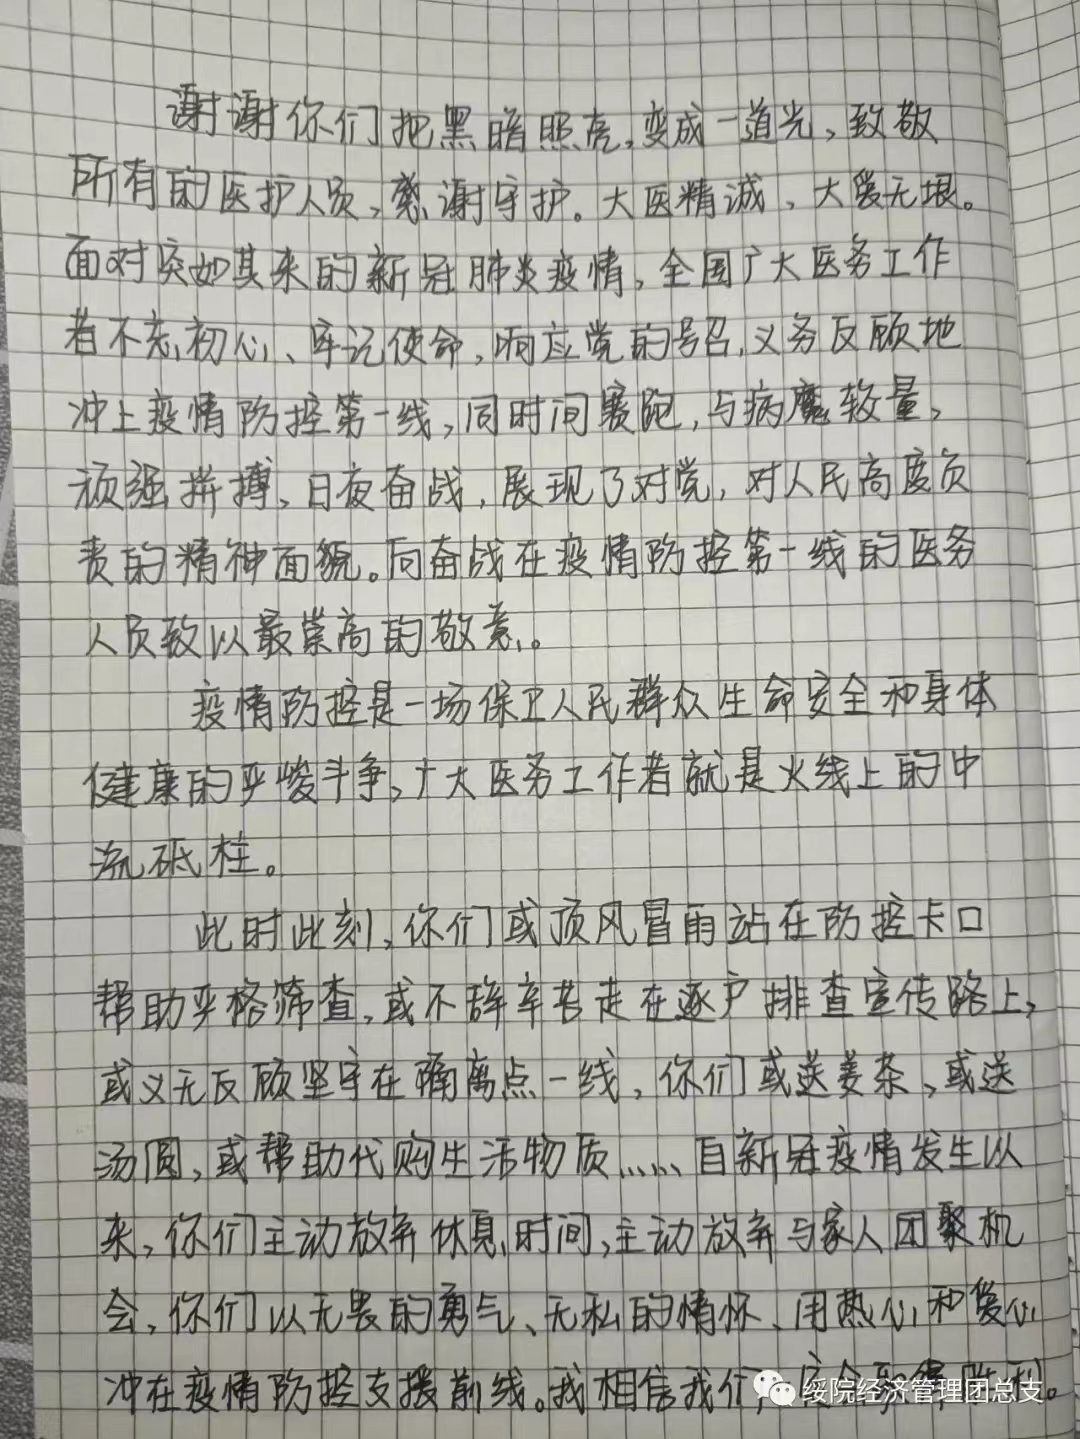 谢谢你们把黑暗照亮,变成一道光,致敬
所有的医护人员,感谢守护。大医精诚,大爱无垠。
面对突如其来的新冠肺炎疫情,全国广大医务工作
者不忘初心、牢记使命,响应党的号召,义务反顾地
冲上疫情防控第一线,同时间赛跑,与病魔较量,
顽强拼搏、日夜奋战,展现了对党,对人民高度负
责的精神面貌。向奋战在疫情防控第一线的医务
人员致以最崇高的敬意。
疫情防控是一场保卫人民群众生命安全和身体
健康的严峻斗争,广大医务工作者就是火线上的中
流砥柱。
此时此刻,你们或顶风冒雨站在防控卡口
帮助严格筛查,或不辞辛苦走在逐户排查宣传路上,
或义无反顾坚守在隔离点一线,你们或送姜茶,或送
汤圆,或帮助代购生活物质……自新冠疫情发生以
来,你们主动放弃休息时间,主动放弃与家人团聚机
会,你们以无畏的勇气、无私的情怀、用热心和爱心
冲在疫情防控支援前线。我相信我们
绥院经济管理团总支